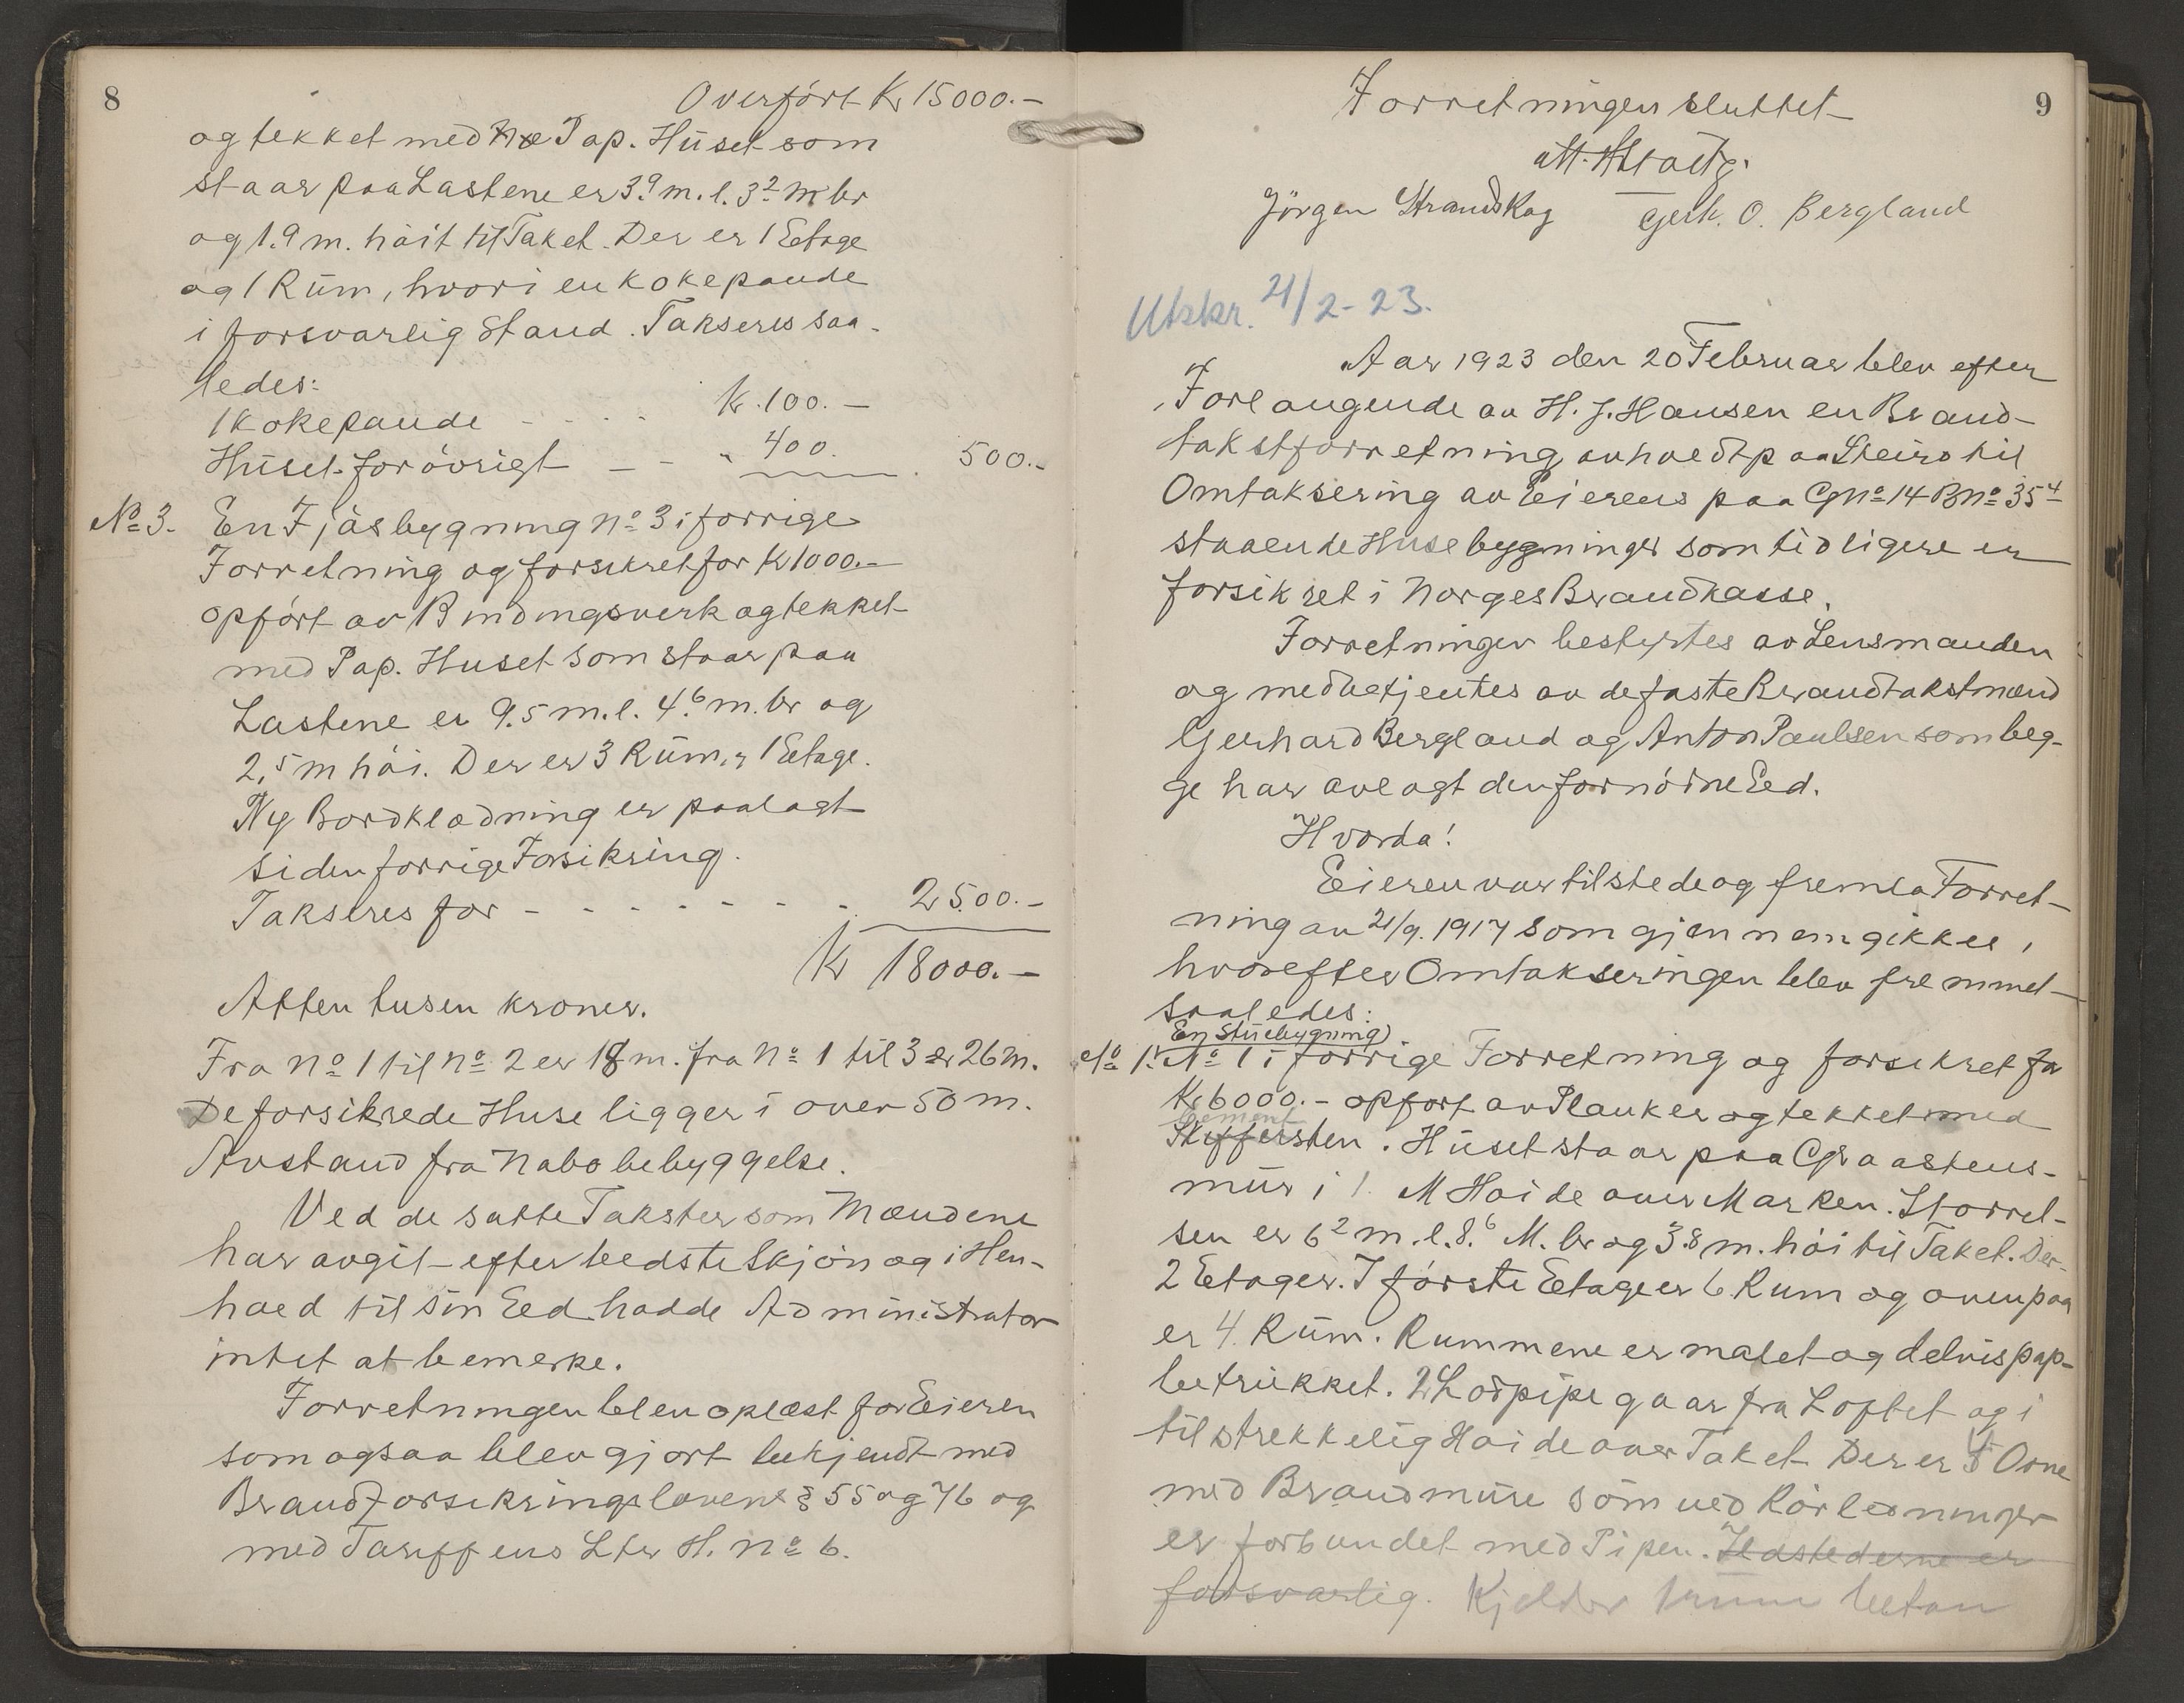 8
Overført Kr 15000.-
og tekket med Pap. Huset som
staar paa Lastene er 3.9 m. l. 3.2 m br
og 1.9 m. høit til Taket. Der er 1 Eetage
og 1 Rum, hvori en kokepande
i forsvarlig Stand. Takseres saa-
ledes:
1 Kokepande - - - Kr. 100.-
Huset forøvrigt - - " 400. 500.-
No 3. En Fjøsbygning No 3 i forrige
Forretning og forsikret for Kr 1000.-
opført av Bindingsverk og tekket
med Pap. Huset som staar paa
Lastene er 9.5 m. l. 4.6 m. br og
2,5 m høi. Der er 3 Rum, 1 Eetage.
Ny Bordklædning er paalagt
siden forrige Forsikring.
Takseres for - - - - - - - 2500.-
Kr 18000.-
Atten tusen kroner.
Fra No 1 til No 2 er 18 m. fra No 1 til 3 er 26 m.
De forsikrede Huse ligger i over 50 m.
Avstand fra Nabobebyggelse.
Ved de satte Takster som Mændene
har avgit efter bedste Skjøn og i Hen-
hoed til sin Eed hadde Administrator
intet at bemerke.
Forretningen blev oplæst for Eieren
som ogsaa blev gjort bekjendt med
Brandforsikringslovens § 55 og 76 og
med Tariffens Ltr H. No 6.
9
Forretningen sluttet
Jørgen Strandskog Gerh. O. Bergland
Utskr. 21/2-23.
Aar 1923 den 20 Februar blev efter
Forlangende av H. J. Hansen en Brand-
takstforretning avholdt paa Steiro til
Omtaksering av Eierens paa Gno 14 Bno 35 4
staaende Husebygninger som tidligere er
forsikret i Norges Brandkasse.
Forretningen bestyrtes av Lensmanden
og medbetjentes av de faste Brandtakstmænd
Gerhard Bergland og Anton Paulsen som beg-
ge har avlagt den fornødne Eed.
Hvorda!
Eieren var tilstede og fremla Forret-
ning av 21/9. 1917 som gjennemgikkes,
hvorefter Omtakseringen blev fremmet
saaledes:
En Stuebygning
No 1. No 1 i forrige Forretning og forsikret for
Kr 6000.- opført av Planker og tekket med
Cement
Skiffersten. Huset staar paa Graastens-
mur i 1. M Høide over Marken. Størrel-
sen er 6.2 m. l. 8.6 M. br og 3.8 m. høi til Taket. Der
2 Etager. I første Etage er 6 Rum og ovenpaa
er 4 Rum. Rummene er malet og delvis pap-
betrukket. 2 Lødpipe gaar fra Loftet og i
tilstrekkelig Høide over Taket. Der er 4 Ovne
med Brandmure som ved Rørledninger
er forbundet med Pipen. Ildstederne er
forsvarlig. Kjelder